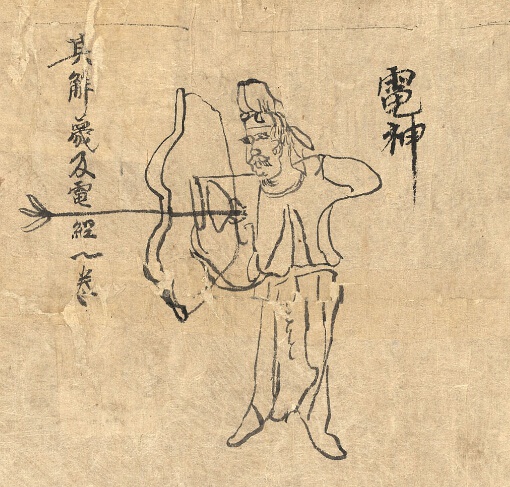 電神
其解夢及電經一卷